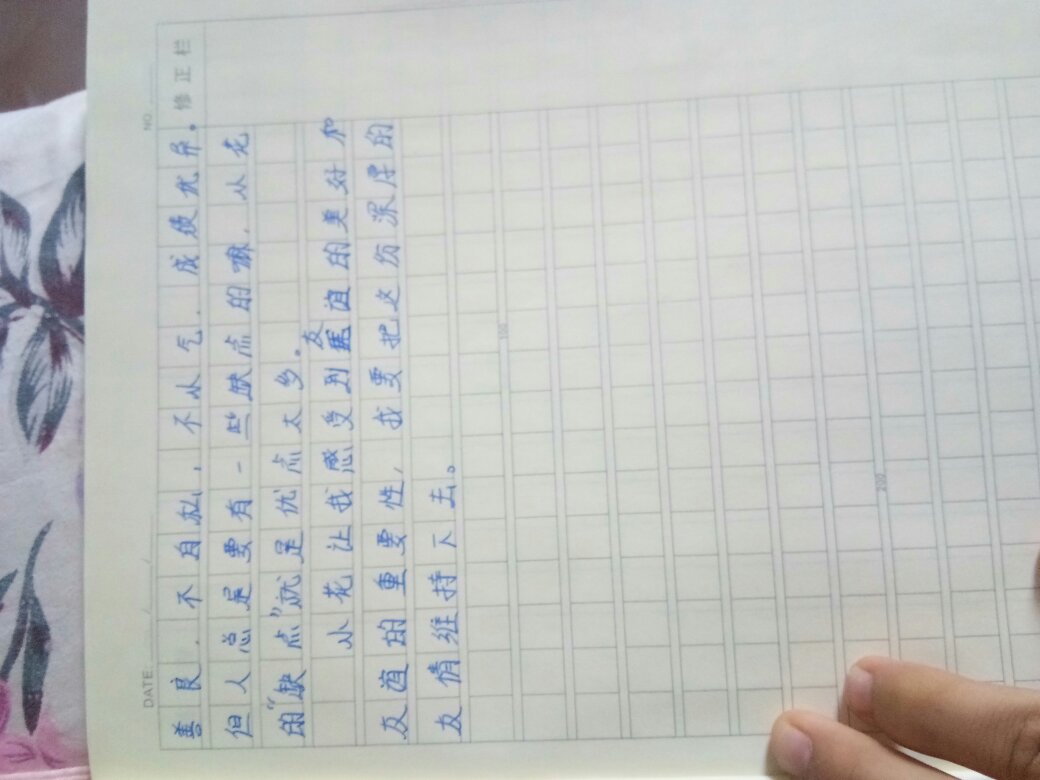 DATE / / NO.
修正栏
善良、不自私,不小气、成绩优异。
但人总是要有一些缺点的嘛,小花
的“缺点”就是优点太多。
小花让我感受到友谊的美好和
友谊的重要性,我要把这份深厚的
友情维持下去。
100
200